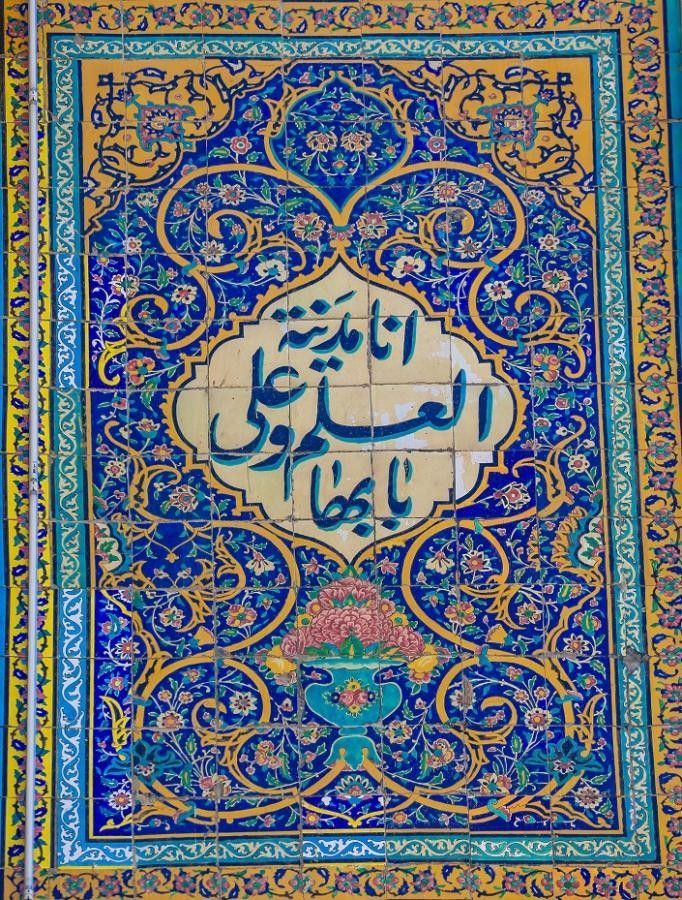 انا مدَینة
العلم و علی
بابها